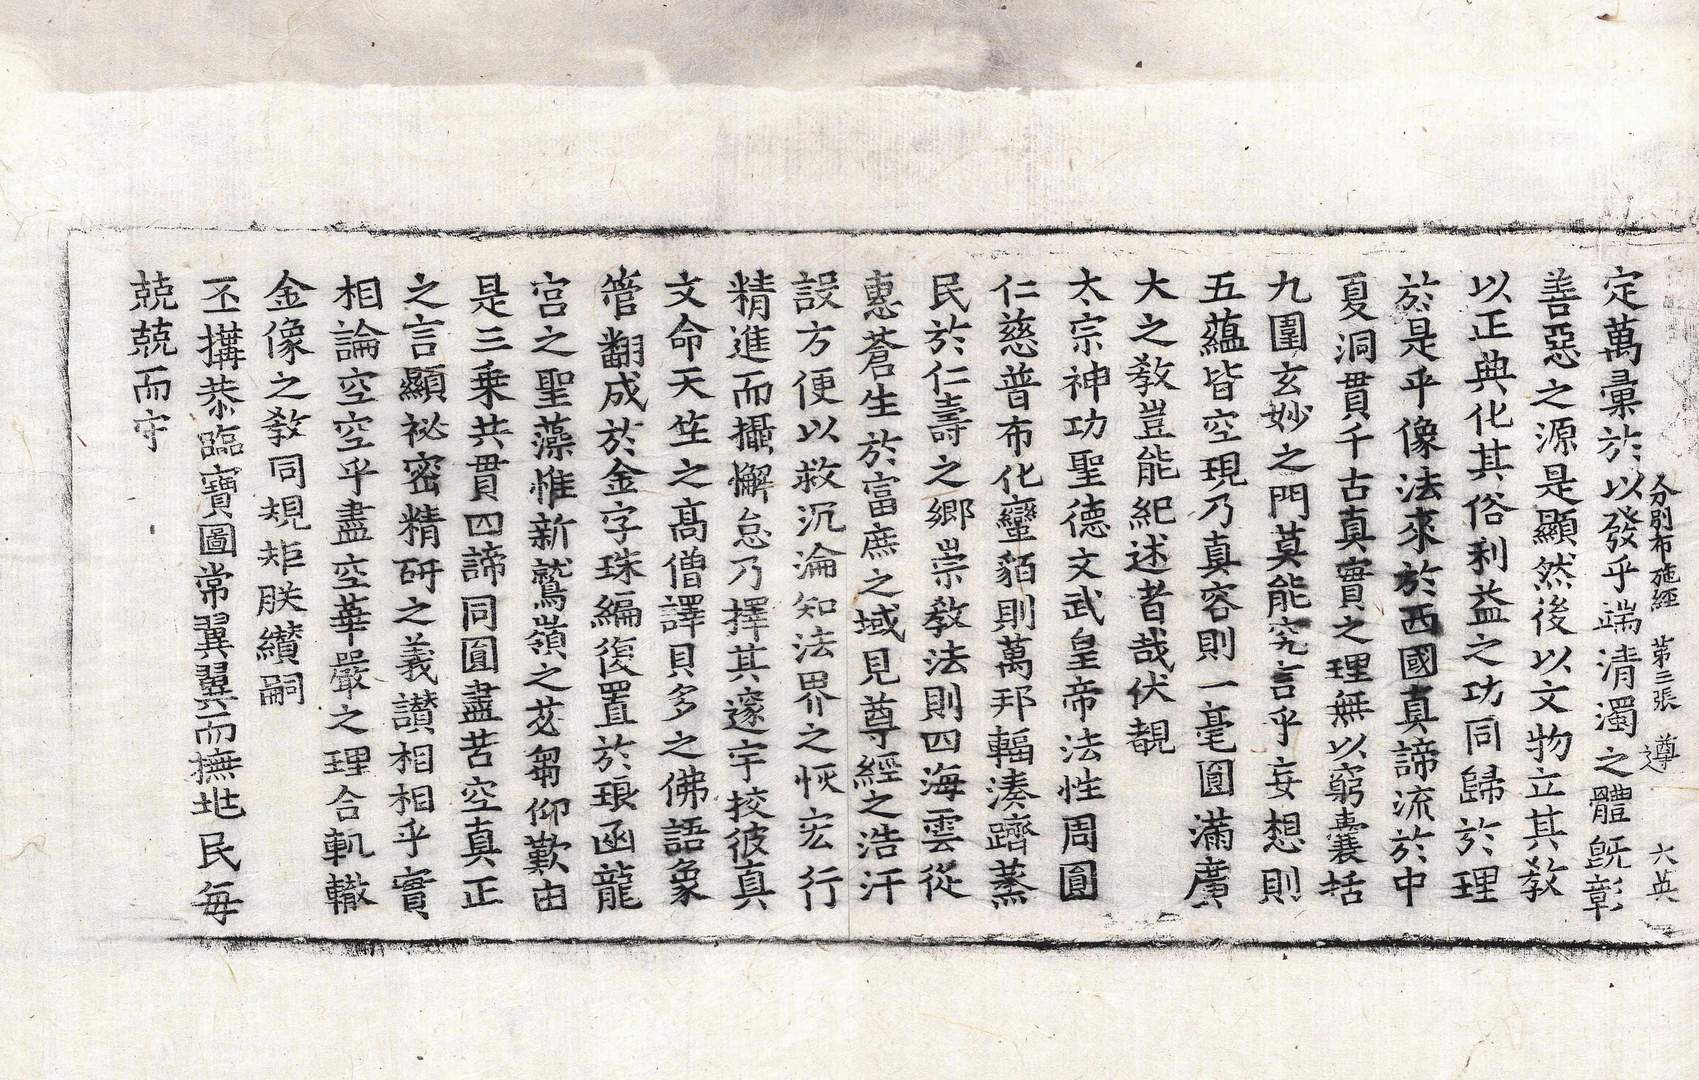 分別布施經 第三張 遵 大英
定萬彙於以發乎端清濁之體旣彰
善惡之源是顯然後以文物立其敎
以正典化其俗利益之功同歸於理
於是乎像法來於西國真諦流於中
夏洞貫千古真實之理無以窮囊括
九圍玄妙之門莫能究言乎妄想則
五蘊皆空現乃真容則一毫圓滿廣
大之敎豈能紀述者哉伏覩
太宗神功聖德文武皇帝法性周圓
仁慈普布化蠻貊則萬邦輻湊躋蒸
民於仁壽之鄉崇敎法則四海雲從
惠蒼生於富庶之域見尊經之浩汗
設方便以救沉淪知法界之恢宏行
精進而攝懈怠乃擇其邃宇挍彼真
文命天竺之高僧譯貝多之佛語象
管翻成於金字珠編復置於琅函龍
宮之聖藻惟新鷲嶺之苾蒭仰歎由
是三乗共貫四諦同圓盡苦空真正
之言顯祕密精研之義讃相相乎實
相論空空乎盡空華嚴之理合軌轍
金像之敎同規矩朕纘嗣
丕搆恭臨寶圖常翼翼而撫世民每
兢兢而守